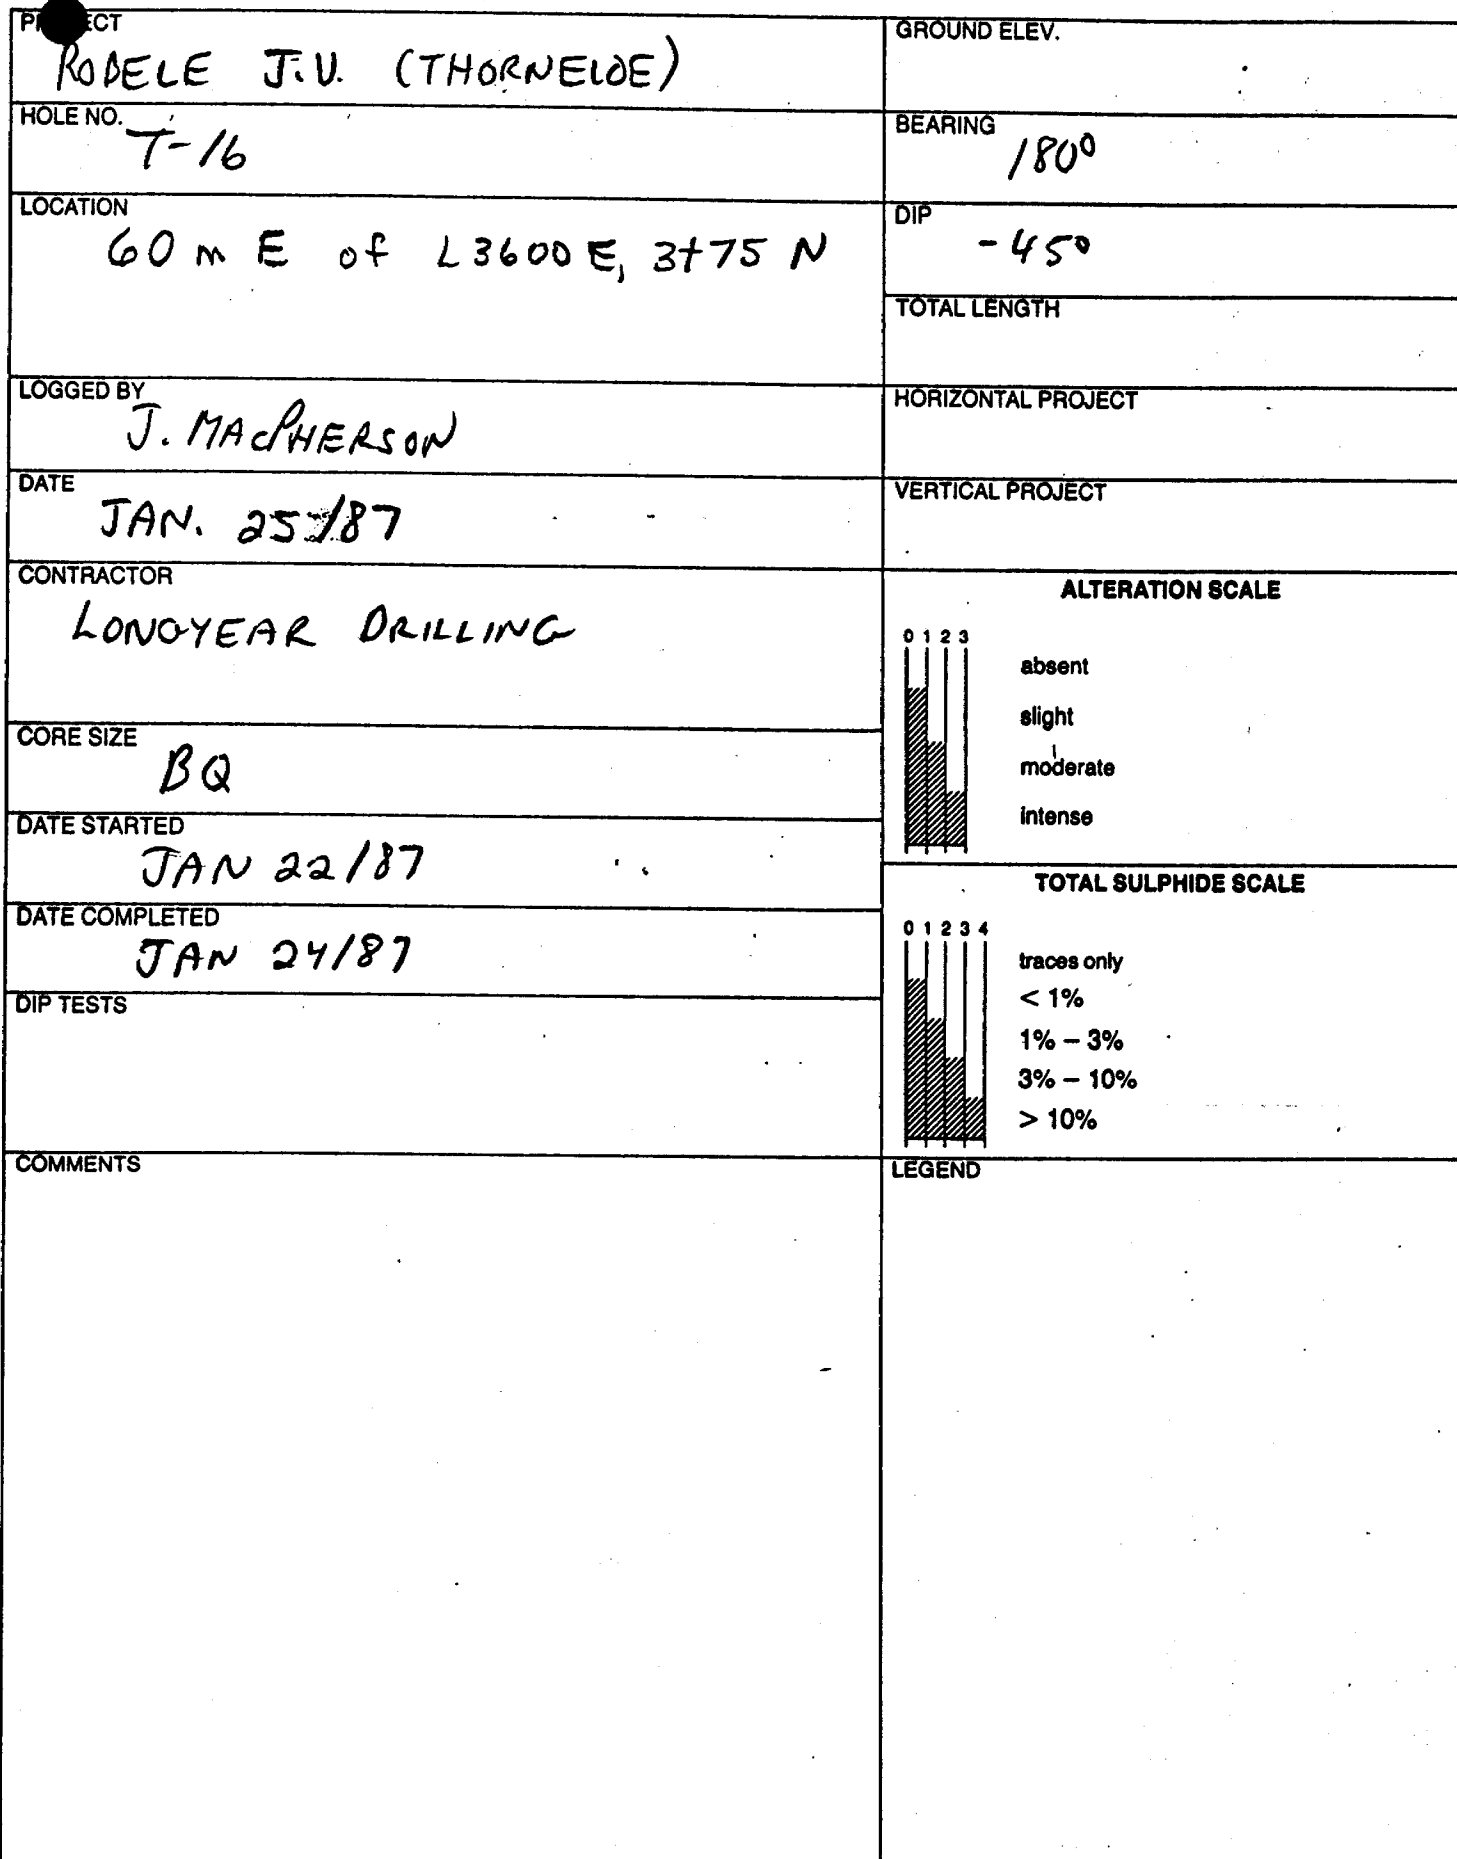 PROJECT
RODELE J.V. (THORNELOE)
HOLE NO.
T-16
LOCATION
60 m E of L3600E, 3+75 N
LOGGED BY
J. MACPHERSON
DATE
JAN. 25/87
CONTRACTOR
LONGYEAR DRILLING
CORE SIZE
BQ
DATE STARTED
JAN 22/87
DATE COMPLETED
JAN 24/87
DIP TESTS
COMMENTS
GROUND ELEV.
BEARING
180°
DIP
-45°
TOTAL LENGTH
HORIZONTAL PROJECT
VERTICAL PROJECT
ALTERATION SCALE
0 1 2 3
absent
slight
moderate
intense
TOTAL SULPHIDE SCALE
0 1 2 3 4
traces only
< 1%
1% – 3%
3% – 10%
> 10%
LEGEND